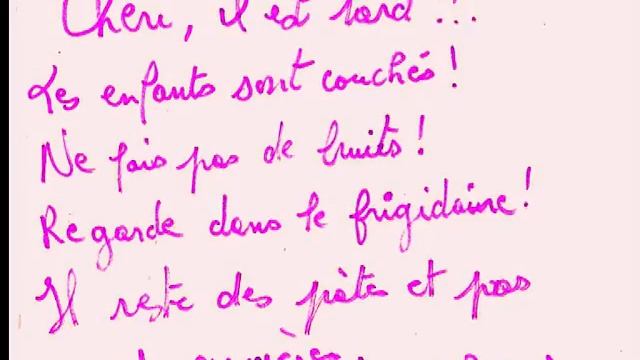 Chéri, il est tard !!!
Les enfants sont couchés !
Ne fais pas de bruits !
Regarde dans le frigidaire !
Il reste des pâtes et pas